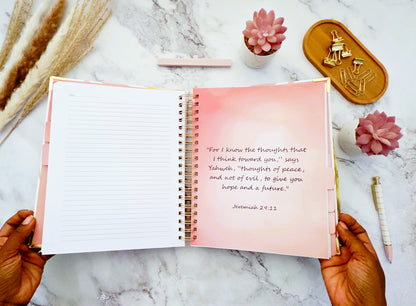 "For I know the thoughts that
I think toward you," says
Yahweh, "thoughts of peace,
and not of evil, to give you
hope and a future."
Jeremiah 29:11